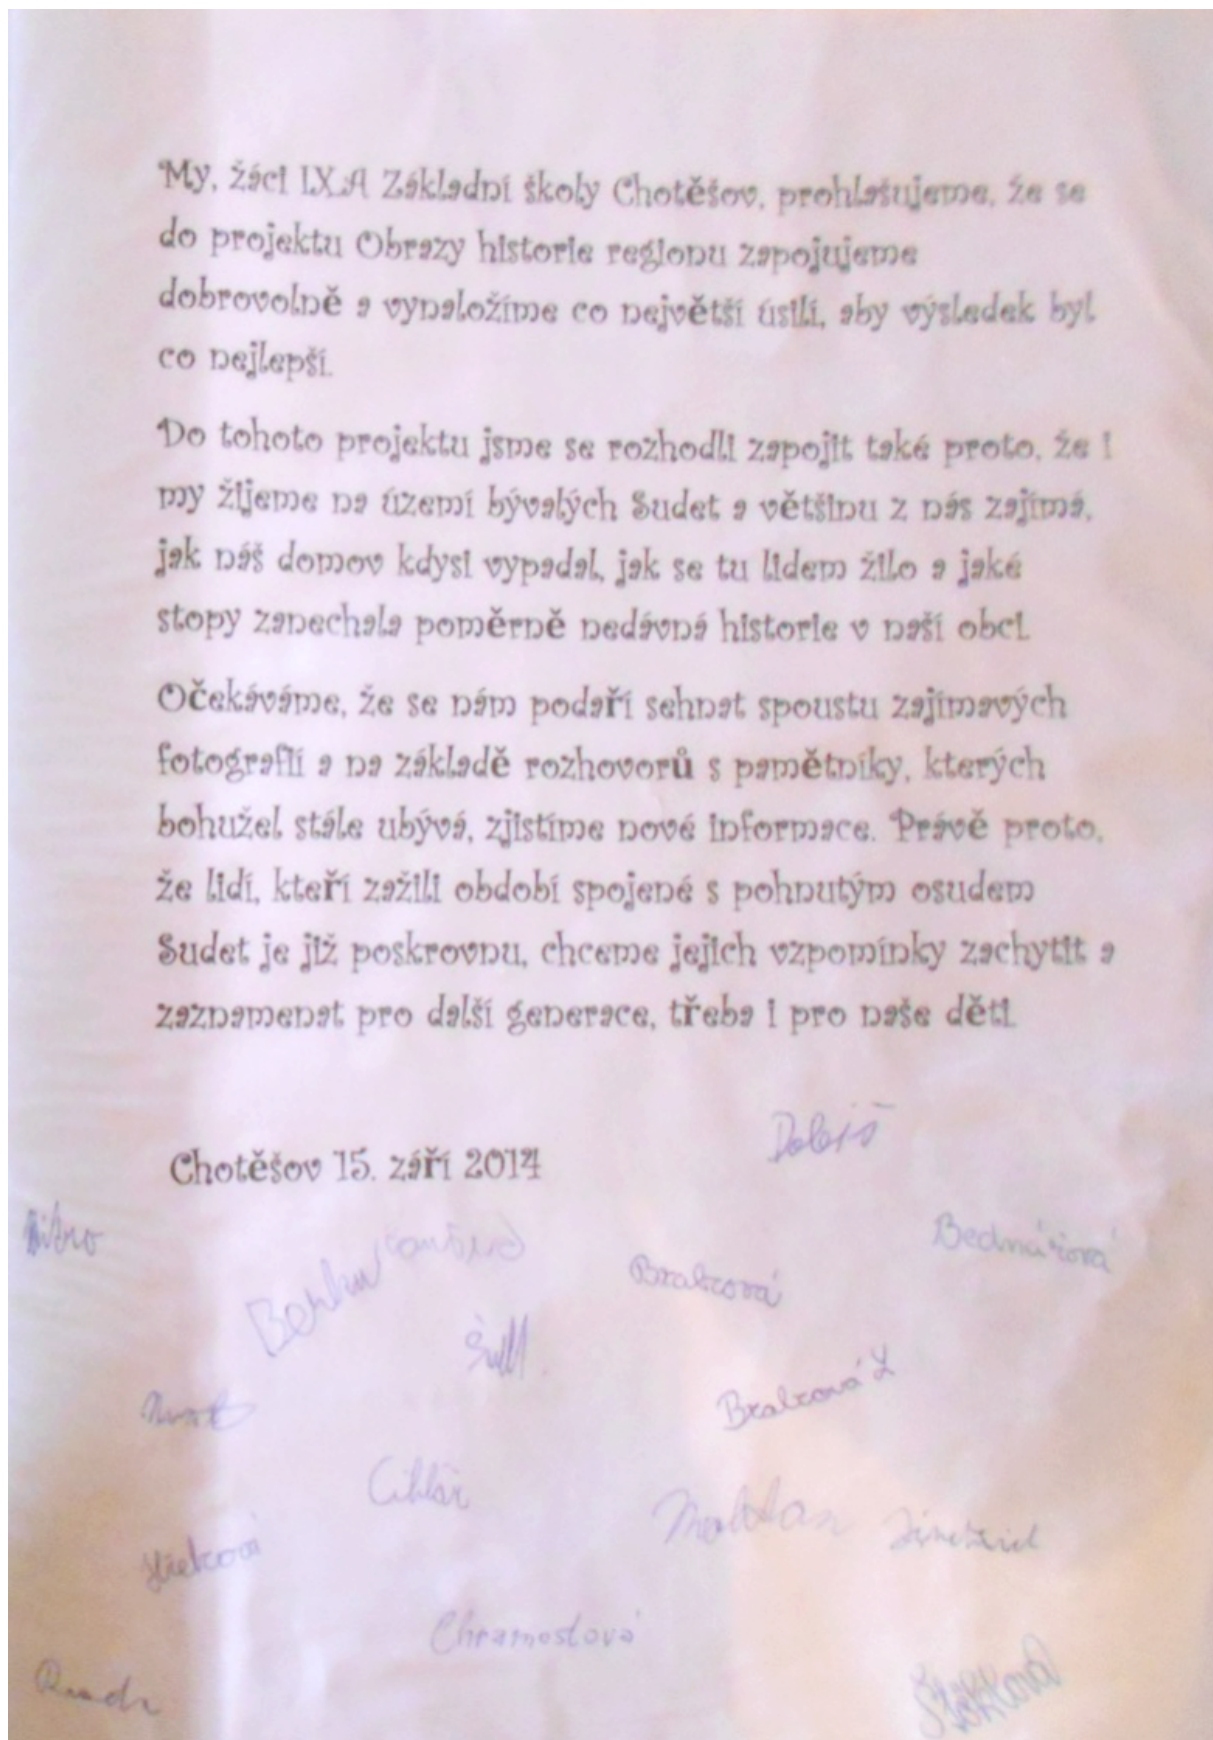 My, žáci IX.A Základní školy Chotěšov, prohlašujeme, že se
do projektu Obrazy historie regionu zapojujeme
dobrovolně a vynaložíme co největší úsilí, aby výsledek byl
co nejlepší.
Do tohoto projektu jsme se rozhodli zapojit také proto, že i
my žijeme na území bývalých Sudet a většinu z nás zajímá,
jak náš domov kdysi vypadal, jak se tu lidem žilo a jaké
stopy zanechala poměrně nedávná historie v naší obci.
Očekáváme, že se nám podaří sehnat spoustu zajímavých
fotografií a na základě rozhovorů s pamětníky, kterých
bohužel stále ubývá, zjistíme nové informace. Právě proto,
že lidí, kteří zažili období spojené s pohnutým osudem
Sudet je již poskrovnu, chceme jejich vzpomínky zachytit a
zaznamenat pro další generace, třeba i pro naše děti.
Chotěšov 15. září 2014
Bednářová
Brabcová
Brabcová
Cihlář
Chramostová